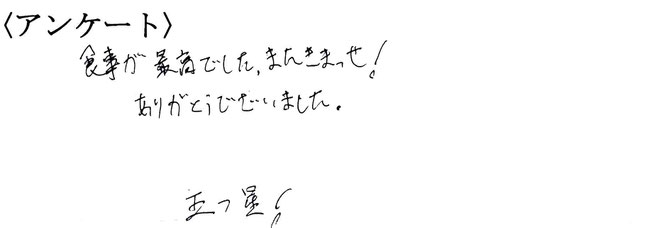 〈アンケート〉
食事が最高でした、またきまっせ!
ありがとうございました。
五つ星!